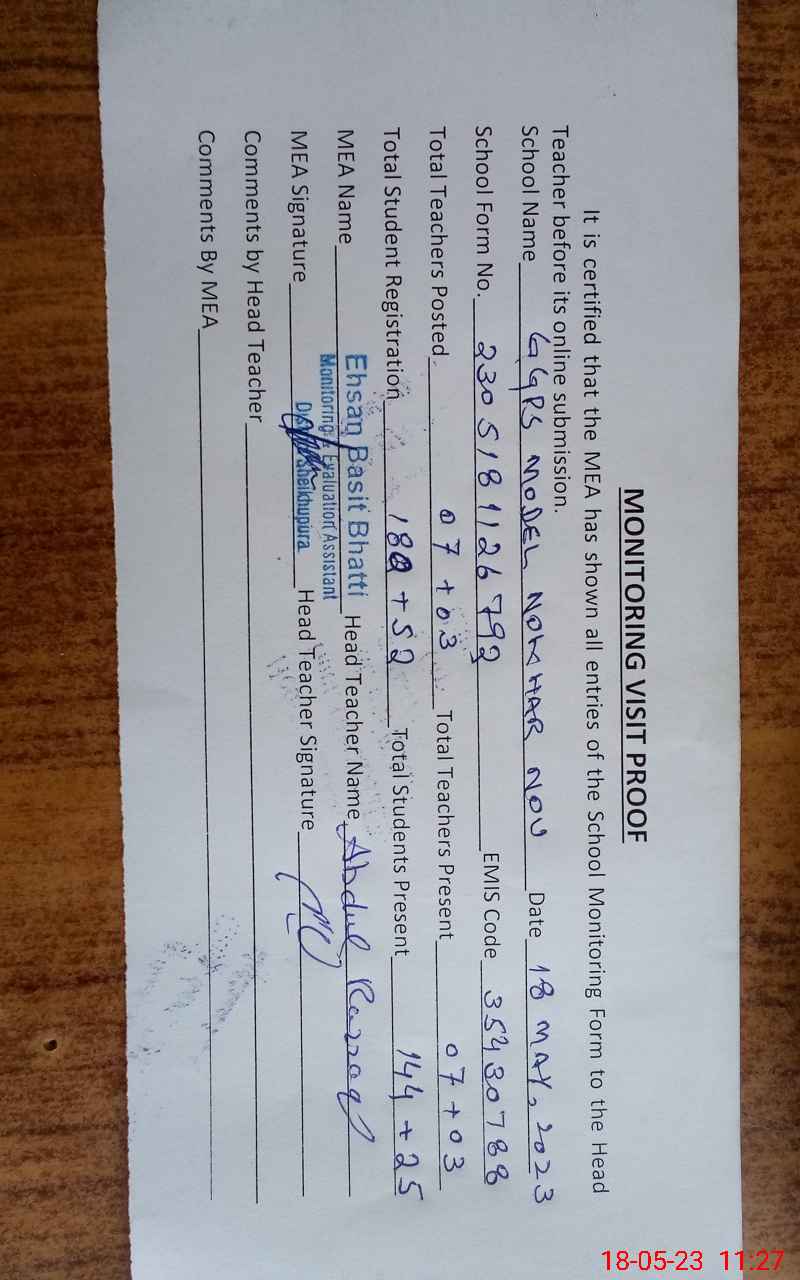 MONITORING VISIT PROOF
It is certified that the MEA has shown all entries of the School Monitoring Form to the Head
Teacher before its online submission.
School Name GGPS MODEL NOKHAR NOU Date 18 MAY, 2023
School Form No. 2305181126792 EMIS Code 35430788
Total Teachers Posted 07 + 03 Total Teachers Present 07 + 03
Total Student Registration + 52 Total Students Present 144 + 25
MEA Name Ehsan Basit Bhatti Head Teacher Name Abdul Razzaq
Monitoring & Evaluation Assistant
MEA Signature Sheikhupura Head Teacher Signature
Comments by Head Teacher
Comments By MEA
18-05-23 11:27